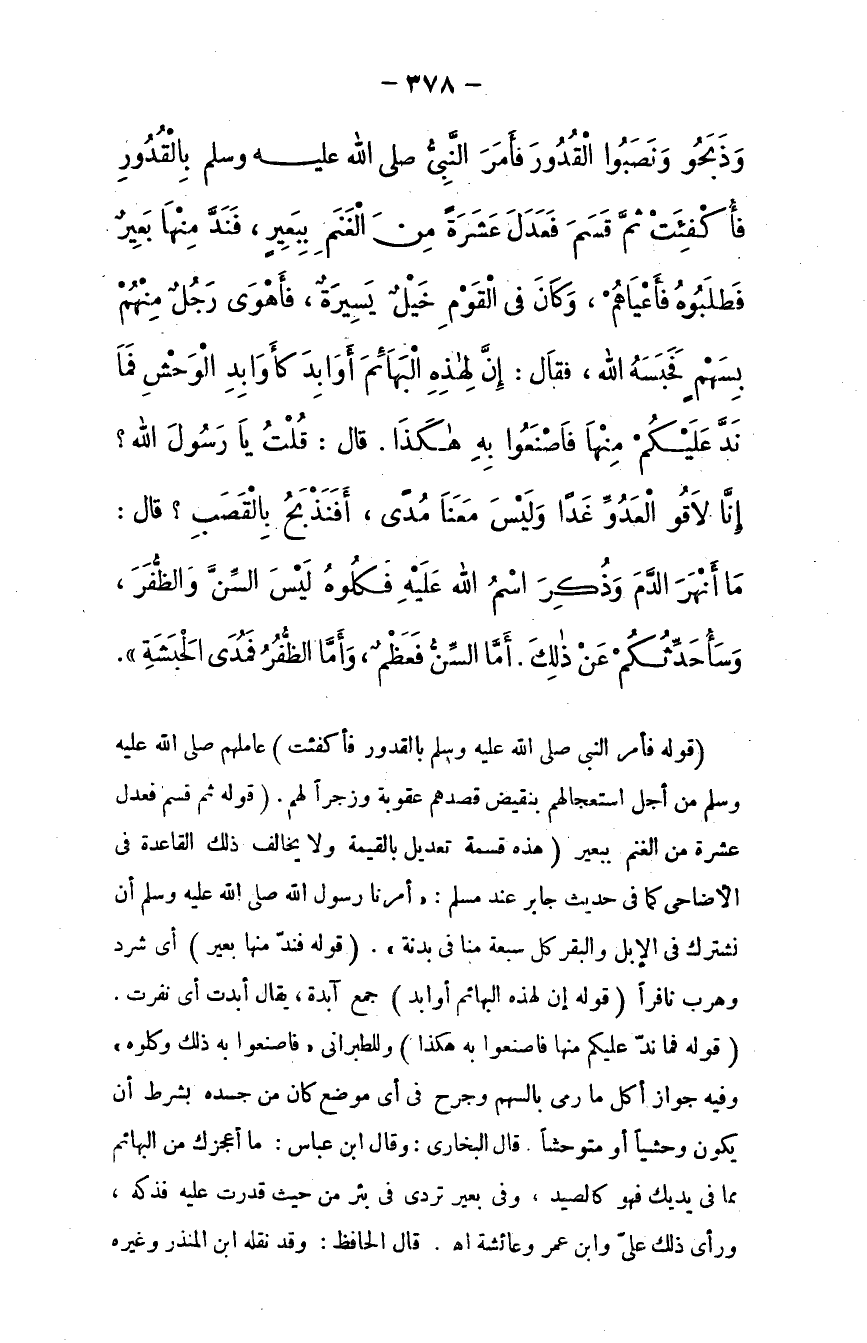 – ٣٧٨ –
وَذَبَحُو وَنَصَبُوا الْقُدُورَ فَأَمَرَ النَّبِيُّ صلى الله عليه وسلم بِالْقُدُورِ
فَأُكْفِئَتْ ثُمَّ قَسَمَ فَعَدَلَ عَشَرَةً مِنَ الْغَنَمِ بِبَعِيرٍ ، فَنَدَّ مِنْهَا بَعِيرٌ
فَطَلَبُوهُ فَأَعْيَاهُمْ ، وَكَانَ فى الْقَوْمِ خَيْلٌ يَسِيرَةٌ ، فَأَهْوَى رَجُلٌ مِنْهُمْ
بِسَهْمٍ فَحَبَسَهُ الله ، فقال : إِنَّ لِهٰذِهِ الْبَهَائِمَ أَوَابِدَ كَأَوَابِدِ الْوَحْشِ فَمَا
نَدَّ عَلَيْكُمْ مِنْهَا فَاصْنَعُوا بِهِ هٰكَذَا . قال : قُلْتُ يَا رَسُولَ الله ؟
إِنَّا لَاقُو الْعَدُوِّ غَدًا وَلَيْسَ مَعَنَا مُدًى ، أَفَنَذْبَحُ بِالْقَصَبِ ؟ قال :
مَا أَنْهَرَ الدَّمَ وَذُكِرَ اسْمُ الله عَلَيْهِ فَكُلُوهُ لَيْسَ السِّنَّ وَالظُّفُرَ ،
وَسَأُحَدِّثُكُمْ عَنْ ذٰلِكَ . أَمَّا السِّنُّ فَعَظْمٌ ، وَأَمَّا الظُّفُرُ فَمُدَى الْحَبَشَةِ » .
( قوله فأمر النبى صلى الله عليه وسلم بالقدور فأكفئت ) عاملهم صلى الله عليه
وسلم من أجل استعجالهم بنقيض قصدهم عقوبة وزجراً لهم . ( قوله ثم قسم فعدل
عشرة من الغنم ببعير ( هذه قسمة تعديل بالقيمة ولا يخالف ذلك القاعدة فى
الاضاحى كما فى حديث جابر عند مسلم : « أمرنا رسول الله صلى الله عليه وسلم أن
نشترك فى الإبل والبقر كل سبعة منا فى بدنة » . ( قوله فندّ منها بعير ) أى شرد
وهرب نافراً ( قوله إن لهذه البهائم أوابد ) جمع آبدة ، يقال أبدت أى نفرت .
( قوله فما ندّ عليكم منها فاصنعوا به هكذا ) وللطبرانى « فاصنعوا به ذلك وكلوه »
وفيه جواز أكل ما رمى بالسهم وجرح فى أى موضع كان من جسده بشرط أن
يكون وحشياً أو متوحشاً . قال البخارى : وقال ابن عباس : ما أعجزك من البهائم
مما فى يديك فهو كالصيد ، وفى بعير تردى فى بئر من حيث قدرت عليه فذكه ،
ورأى ذلك علىّ وابن عمر وعائشة اه . قال الحافظ : وقد نقله ابن المنذر وغيره